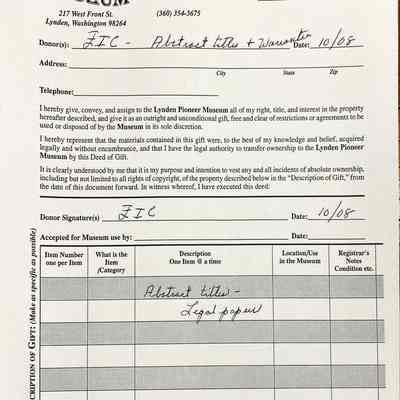 217 West Front St.
Lynden, Washington 98264
(360) 354-3675
Donor(s): FIC - Abstract titles + Warranties Date: 10/08
Address:
City State Zip
Telephone:
I hereby give, convey, and assign to the Lynden Pioneer Museum all of my right, title, and interest in the property
hereafter described, and give it as an outright and unconditional gift, free and clear of restrictions or agreements to be
used or disposed of by the Museum in its sole discretion.
I hereby represent that the materials contained in this gift were, to the best of my knowledge and belief, acquired
legally and without encumbrance, and that I have the legal authority to transfer ownership to the Lynden Pioneer
Museum by this Deed of Gift.
It is clearly understood by me that it is my purpose and intention to vest any and all incidents of absolute ownership,
including but not limited to all rights of copyright, of the property described below in the "Description of Gift," from
the date of this document forward. In witness whereof, I have executed this deed:
Donor Signature(s) FIC Date: 10/08
Accepted for Museum use by: Date:
Item Number
one per Item
What is the
Item
/Category
Description
One Item @ a time
Location/Use
in the Museum
Registrar's
Notes
Condition etc.
Abstract titles -
Legal papers
CRIPTION OF GIFT: (Make as specific as possible)